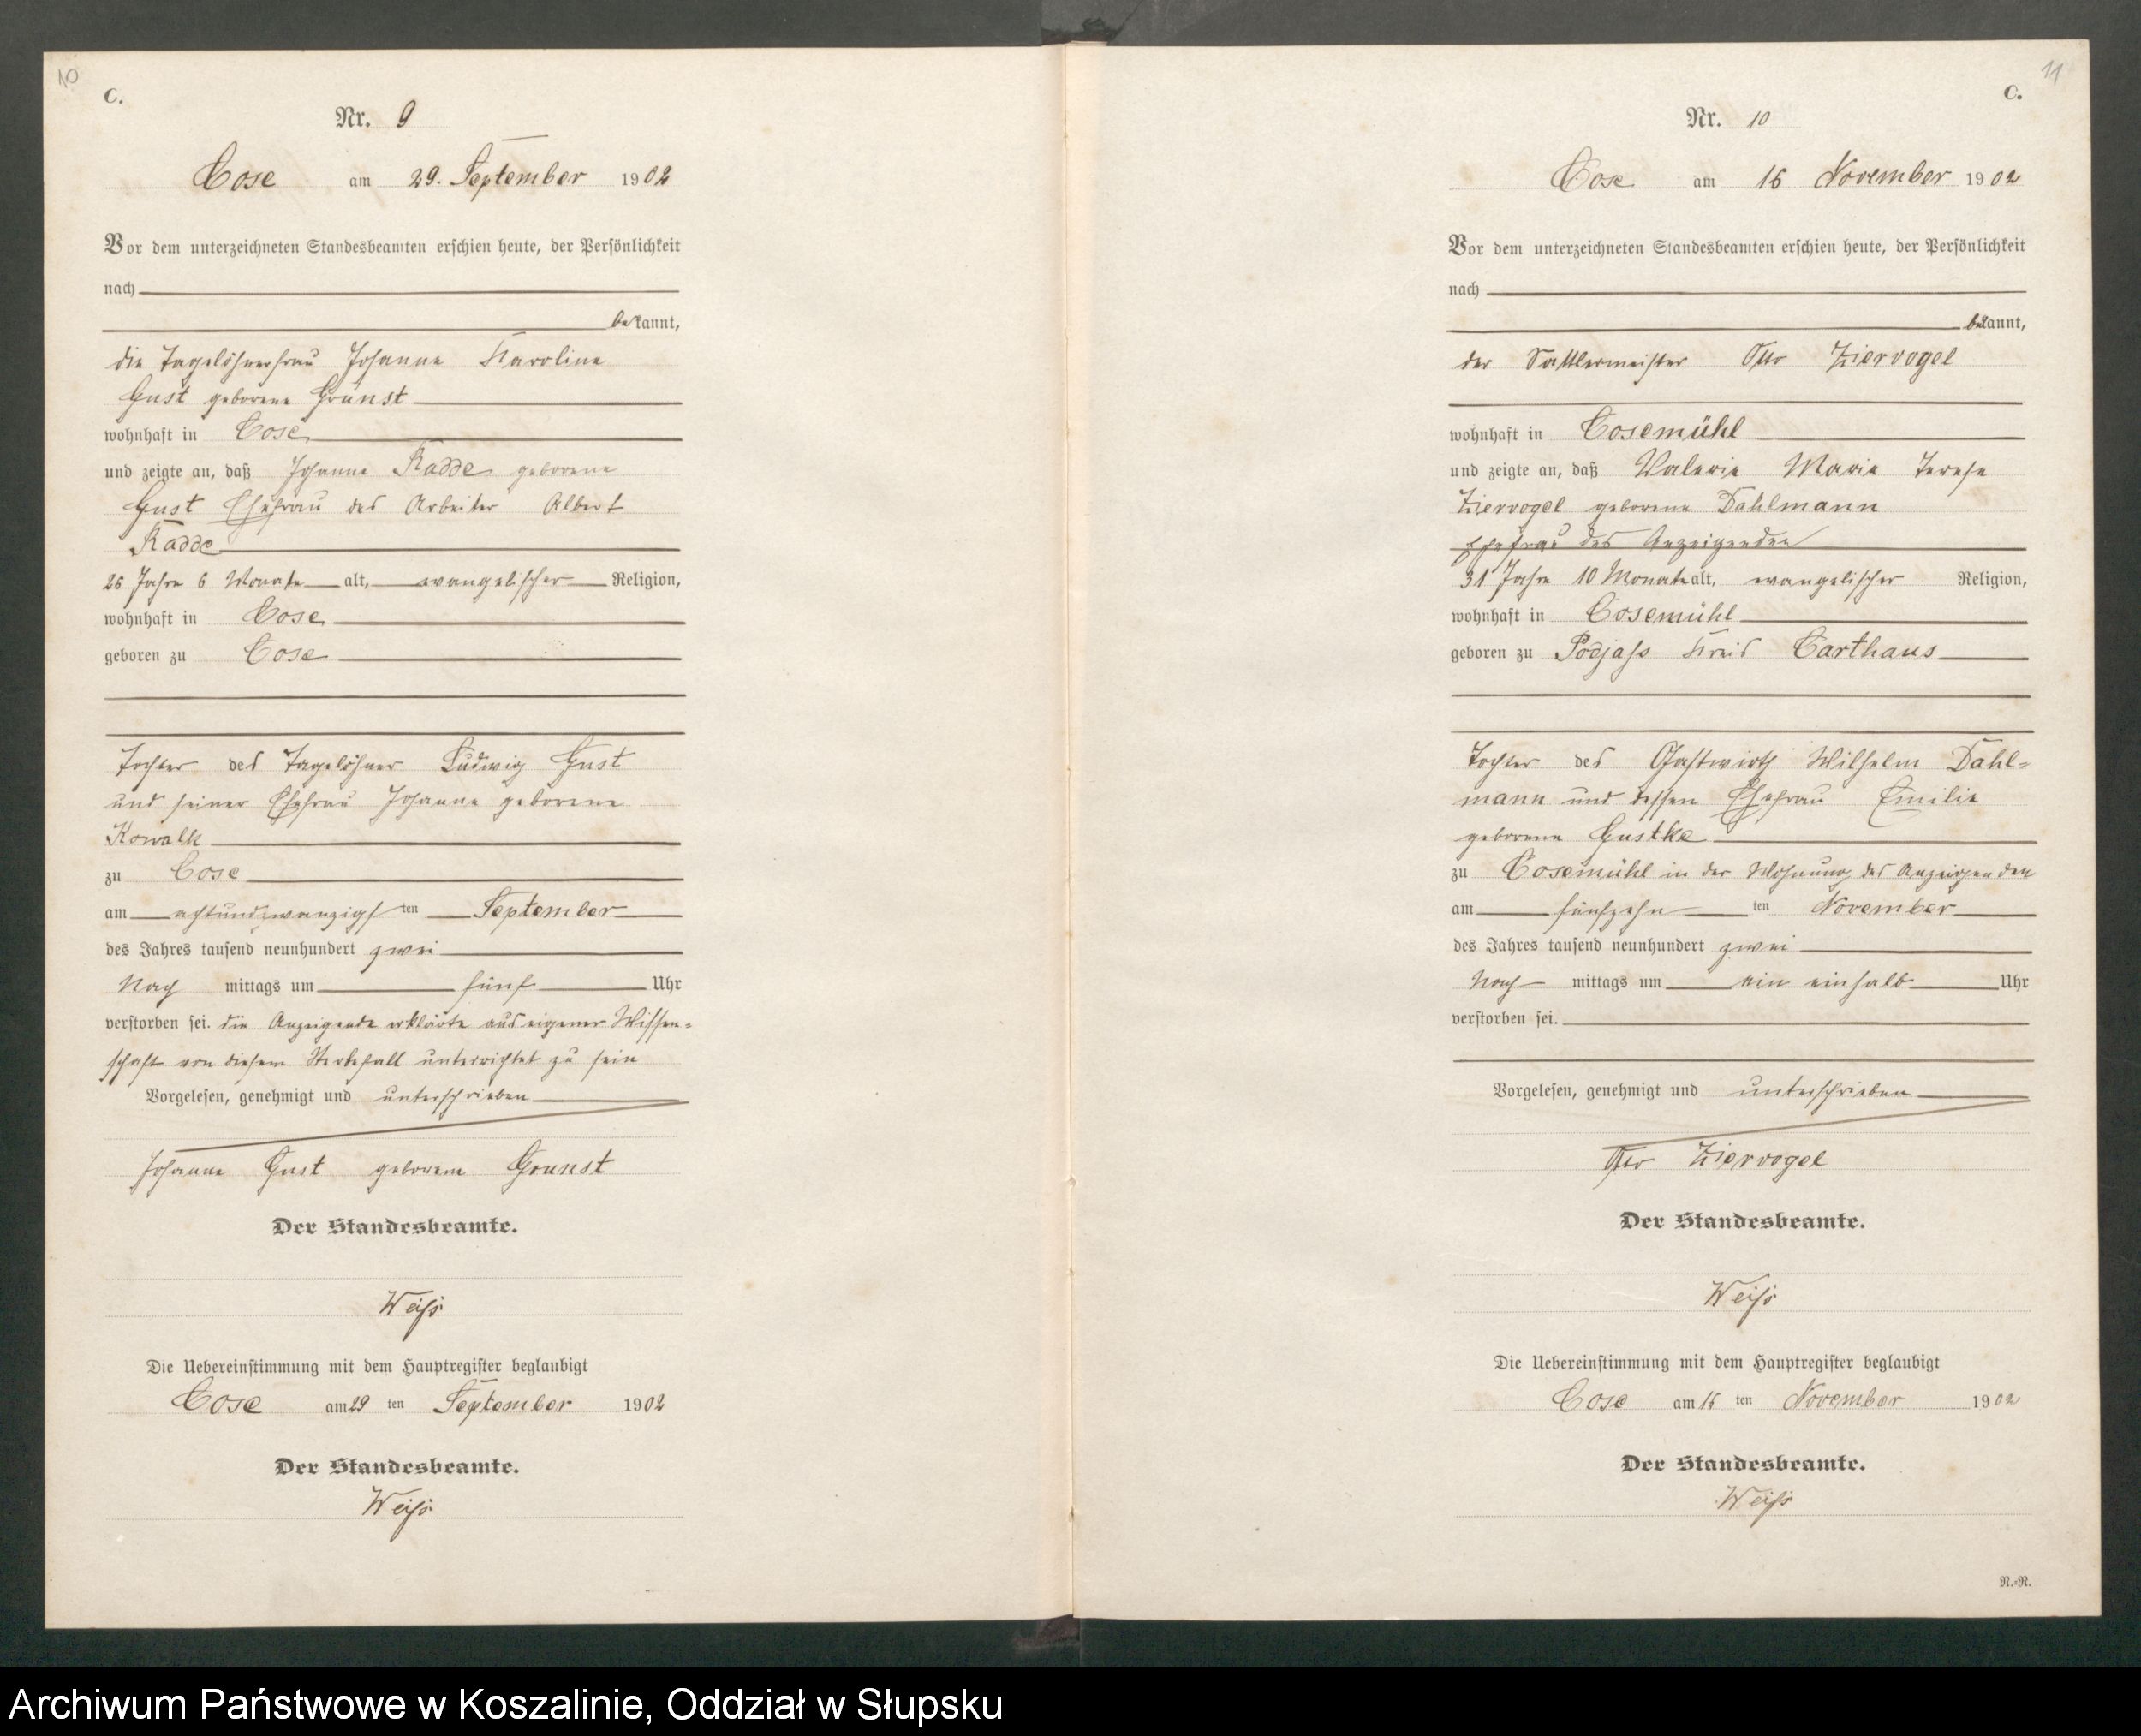 10
C.
Nr. 9
Cose am 29. September 1902
Vor dem unterzeichneten Standesbeamten erschien heute, der Persönlichkeit
nach
bekannt,
die Tagelöhnerfrau Johanne Karoline
Gust geborene Grunst
wohnhaft in Cose
und zeigte an, daß Johanne Radde geborene
Gust Ehefrau des Arbeiter Albert
Radde
26 Jahre 6 Monate alt, evangelischer Religion,
wohnhaft in Cose
geboren zu Cose
Tochter des Tagelöhner Ludwig Gust
und seiner Ehefrau Johanne geborene
Kowalk
zu Cose
am achtundzwanzigsten September
des Jahres tausend neunhundert zwei
Nach mittags um fünf Uhr
verstorben sei. die Anzeigende erklärte aus eigener Wissen=
schaft von diesem Sterbefall unterrichtet zu sein
Vorgelesen, genehmigt und unterschrieben
Johanne Gust geborene Grunst
Der Standesbeamte.
Weiß
Die Uebereinstimmung mit dem Hauptregister beglaubigt
Cose am 29 ten September 1902
Der Standesbeamte.
Weiß
11
C.
Nr. 10
Cose am 16 November 1902
Vor dem unterzeichneten Standesbeamten erschien heute, der Persönlichkeit
nach
bekannt,
der Sattlermeister Otto Ziervogel
wohnhaft in Cosemühl
und zeigte an, daß Valerie Marie Terese
Ziervogel geborene Dahlmann
Ehefrau des Anzeigenden
31 Jahre 10 Monate alt, evangelischer Religion,
wohnhaft in Cosemühl
geboren zu Podjass Kreis Carthaus
Tochter des Gastwirth Wilhelm Dahl=
mann und dessen Ehefrau Emilie
geborene Gustke
zu Cosemühl in der Wohnung des Anzeigenden
am fünfzehn ten November
des Jahres tausend neunhundert zwei
Nach mittags um ein einhalb Uhr
verstorben sei.
Vorgelesen, genehmigt und unterschrieben
Otto Ziervogel
Der Standesbeamte.
Weiß
Die Uebereinstimmung mit dem Hauptregister beglaubigt
Cose am 16 ten November 1902
Der Standesbeamte.
Weiß
R.=R.
Archiwum Państwowe w Koszalinie, Oddział w Słupsku